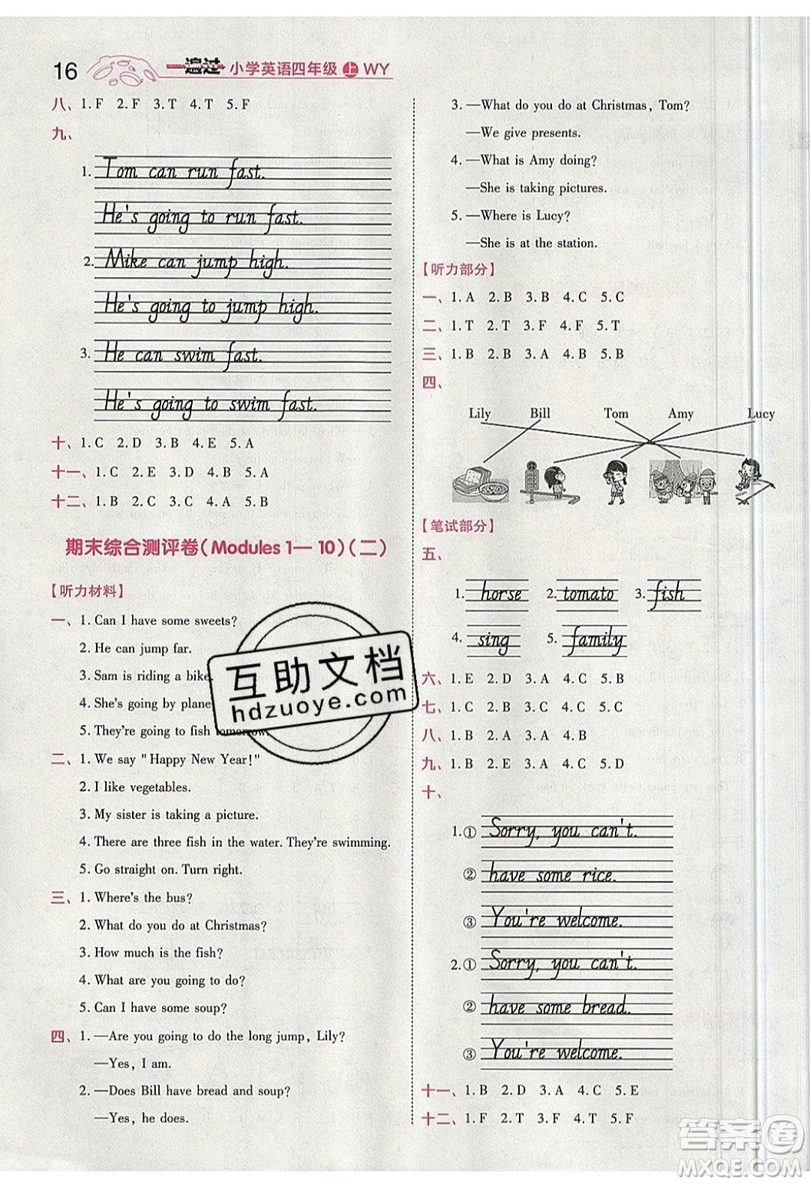 16 一遍过 小学英语四年级 上 WY
八、1. F 2. F 3. T 4. T 5. F
九、
1. Tom can run fast.
He's going to run fast.
2. Mike can jump high.
He's going to jump high.
3. He can swim fast.
He's going to swim fast.
十、1. C 2. D 3. B 4. E 5. A
十一、1. C 2. D 3. A 4. E 5. B
十二、1. B 2. C 3. B 4. C 5. A
期末综合测评卷(Modules 1—10)(二)
【听力材料】
一、1. Can I have some sweets?
2. He can jump far.
3. Sam is riding a bike.
4. She's going by plane
5. They're going to fish tomorrow.
二、1. We say "Happy New Year!"
2. I like vegetables.
3. My sister is taking a picture.
4. There are three fish in the water. They're swimming.
5. Go straight on. Turn right.
三、1. Where's the bus?
2. What do you do at Christmas?
3. How much is the fish?
4. What are you going to do?
5. Can I have some soup?
四、1. —Are you going to do the long jump, Lily?
—Yes, I am.
2. —Does Bill have bread and soup?
—Yes, he does.
3. —What do you do at Christmas, Tom?
—We give presents.
4. —What is Amy doing?
—She is taking pictures.
5. —Where is Lucy?
—She is at the station.
【听力部分】
一、1. A 2. B 3. B 4. C 5. C
二、1. T 2. T 3. F 4. F 5. T
三、1. B 2. B 3. A 4. B 5. A
四、
Lily Bill Tom Amy Lucy
【笔试部分】
五、
1. horse 2. tomato 3. fish
4. sing 5. family
六、1. E 2. D 3. A 4. C 5. B
七、1. C 2. C 3. A 4. C 5. B
八、1. B 2. A 3. A 4. A 5. B
九、1. B 2. D 3. A 4. E 5. C
十、
1. ① Sorry, you can't.
② have some rice.
③ You're welcome.
2. ① Sorry, you can't.
② have some bread.
③ You're welcome.
十一、1. B 2. D 3. A 4. C 5. E
十二、1. F 2. F 3. T 4. T 5. F
互助文档
hdzuoye.com
答案圈
MXQE.COM